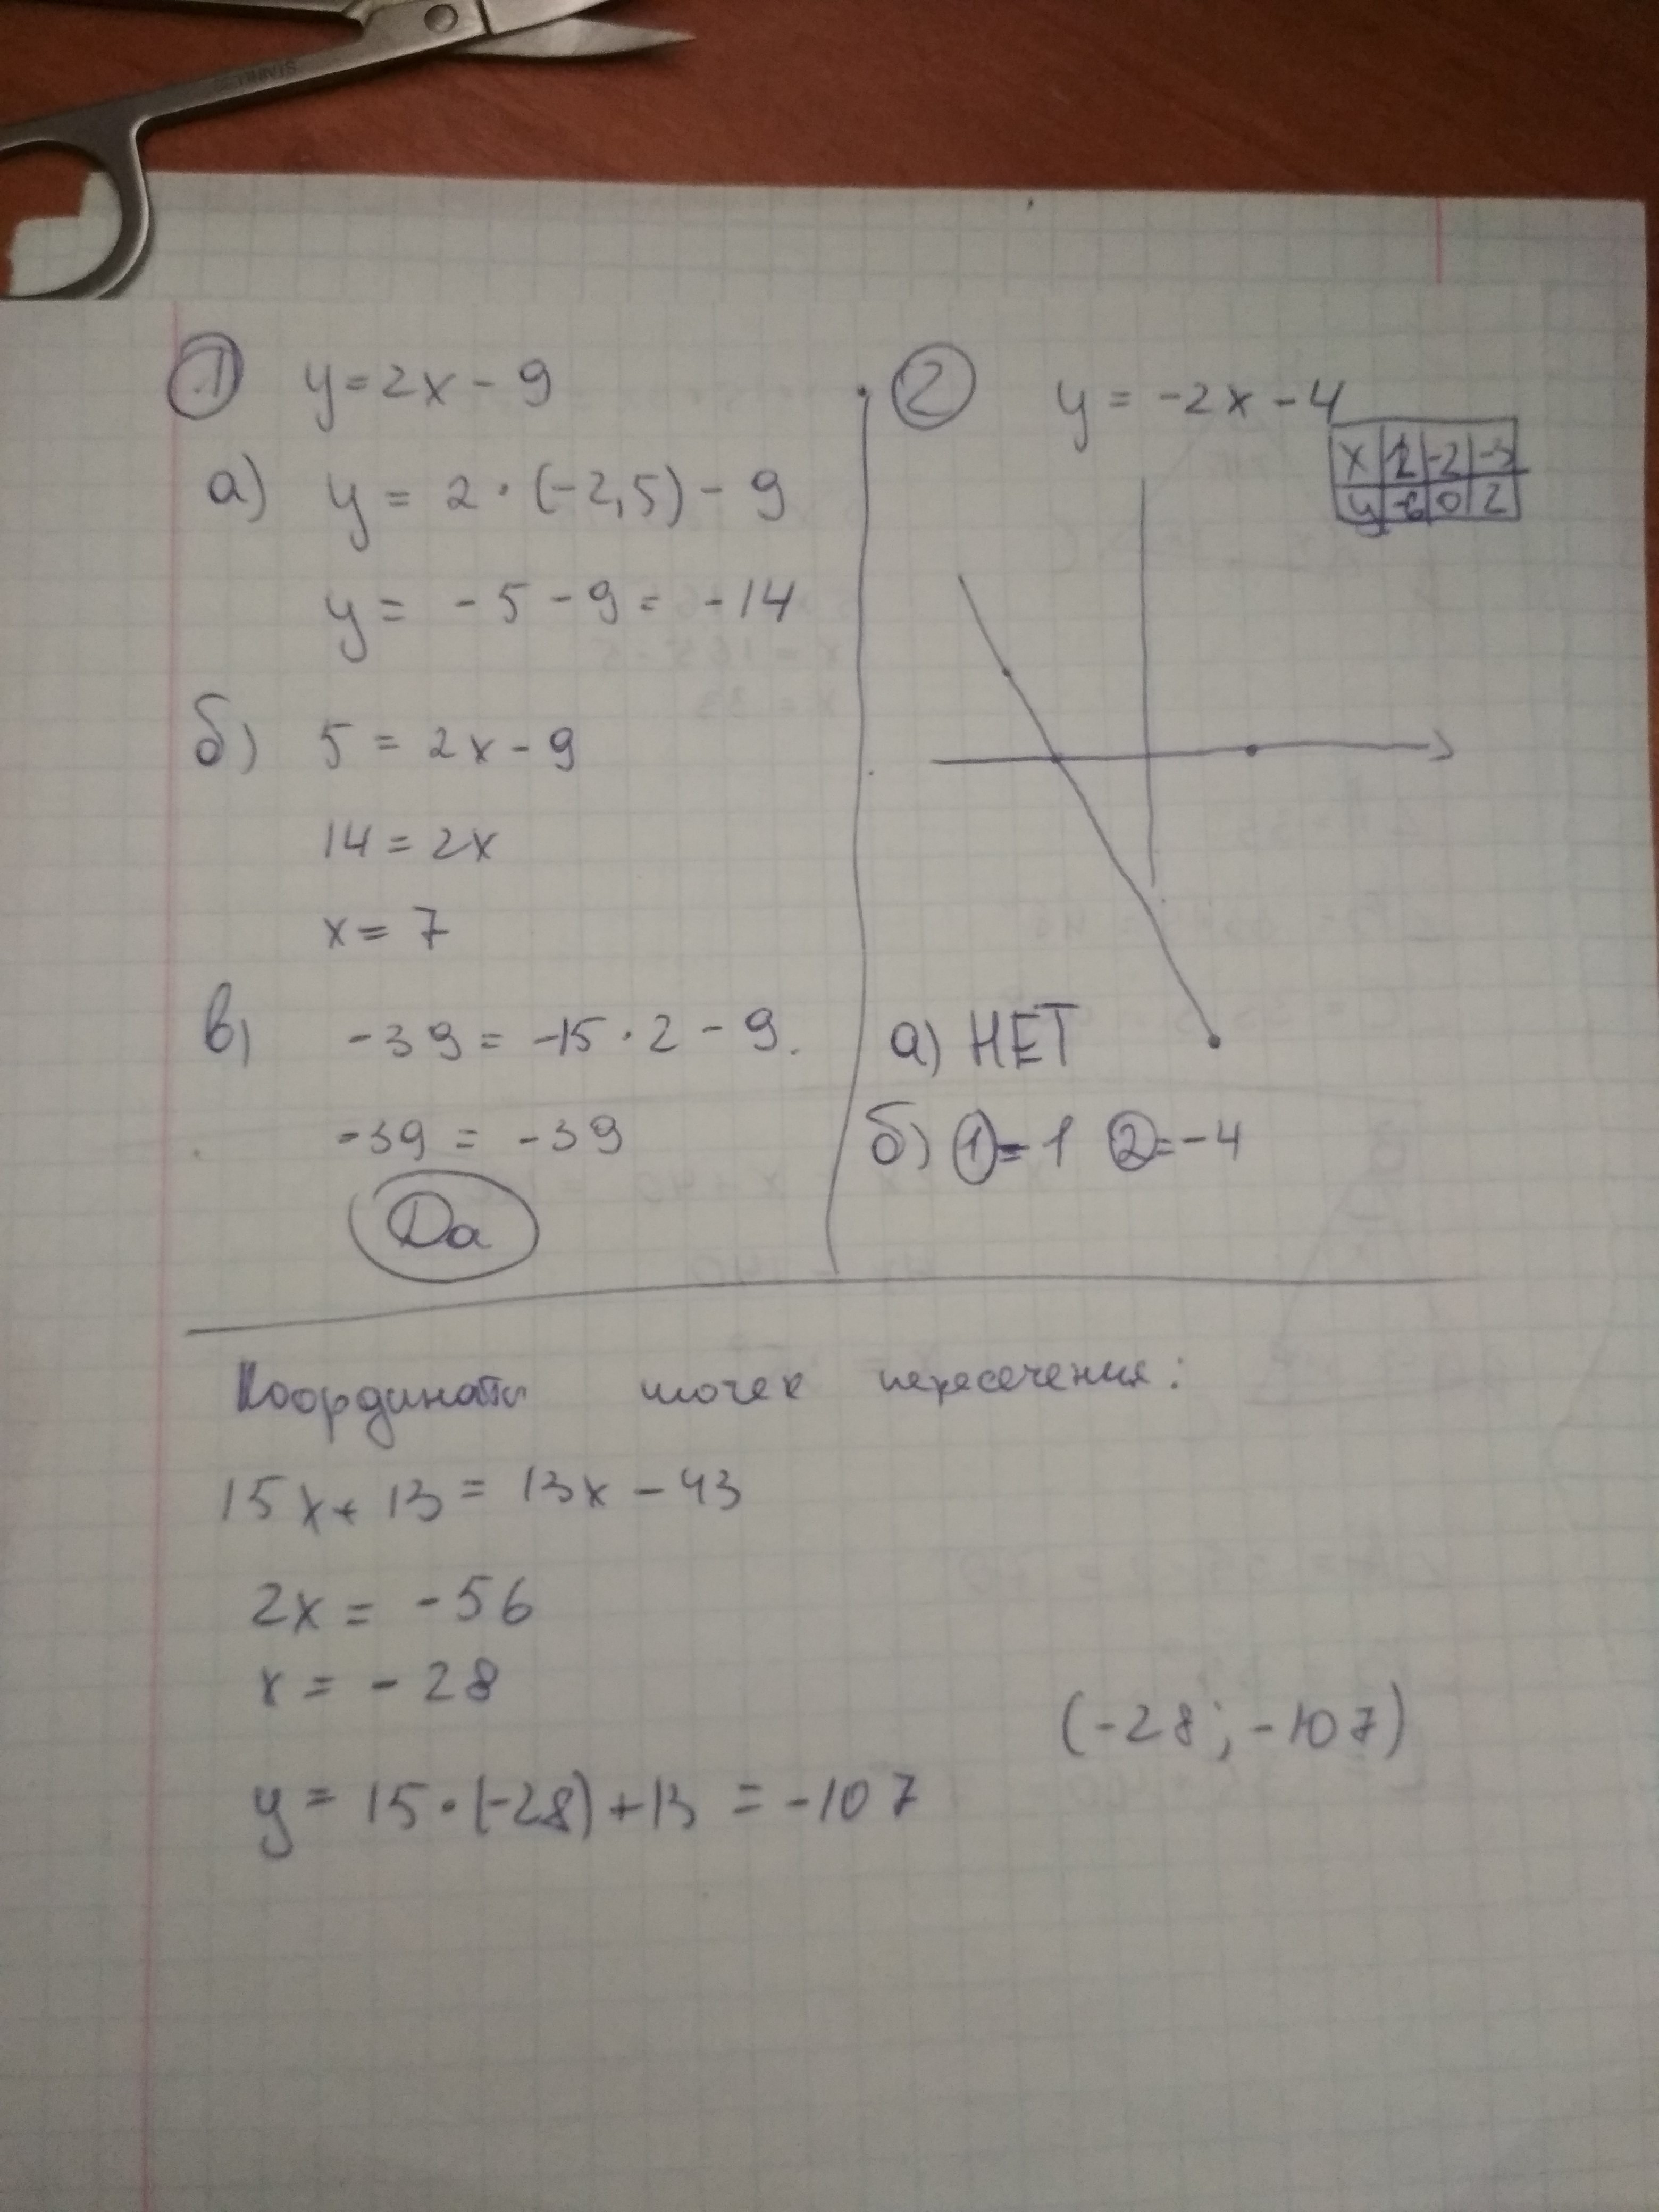 1 y = 2x - 9
а) y = 2 · (-2,5) - 9
y = -5 - 9 = -14
б) 5 = 2x - 9
14 = 2x
x = 7
в) -39 = -15 · 2 - 9.
-39 = -39
Да
2 y = -2x - 4
x 1 -2 -3
y -6 0 2
а) НЕТ
б) 1 = 1 2 = -4
Координаты точек пересечения:
15x + 13 = 13x - 43
2x = -56
x = -28
y = 15 · (-28) + 13 = -107
(-28; -107)